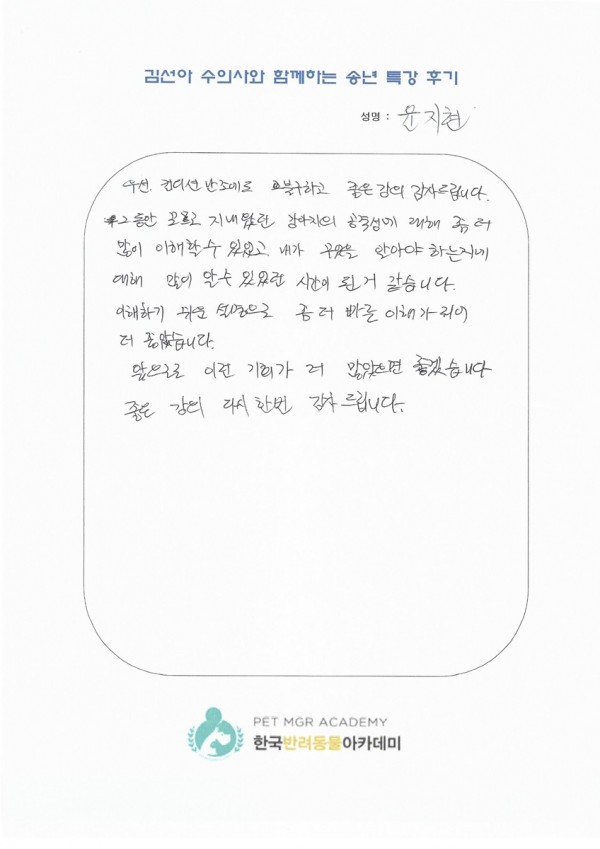 김선아 수의사와 함께하는 송년 특강 후기
성명 : 문지현
우선, 컨디션 난조에도 불구하고 좋은 강의 감사드립니다.
그동안 모르고 지내왔던 강아지의 공격성에 대해 좀 더
많이 이해할 수 있었고, 내가 무엇을 알아야 하는지에
대해 많이 알 수 있었던 시간이 된 거 같습니다.
이해하기 쉬운 설명으로 좀 더 빠른 이해가 되어
더 좋았습니다.
앞으로도 이런 기회가 더 많았으면 좋겠습니다
좋은 강의 다시 한번 감사드립니다.
PET MGR ACADEMY
한국반려동물아카데미